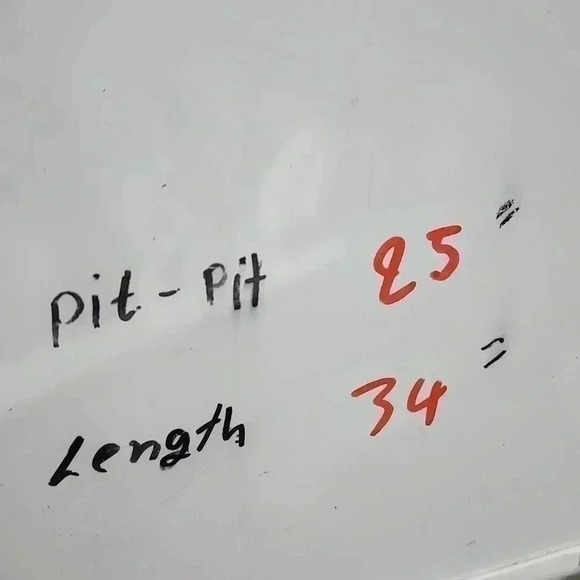 Pit - Pit 25"
Length 34"